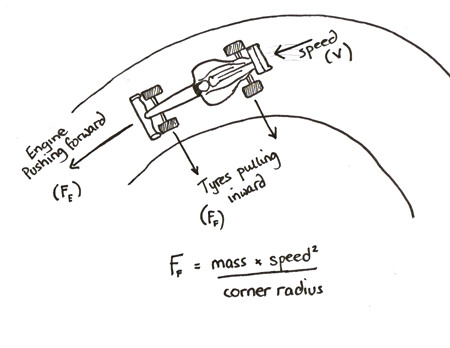 speed
(V)
Engine
Pushing forward
(F_E)
Tyres pulling
inward
(F_F)
F_F = mass × speed²
corner radius